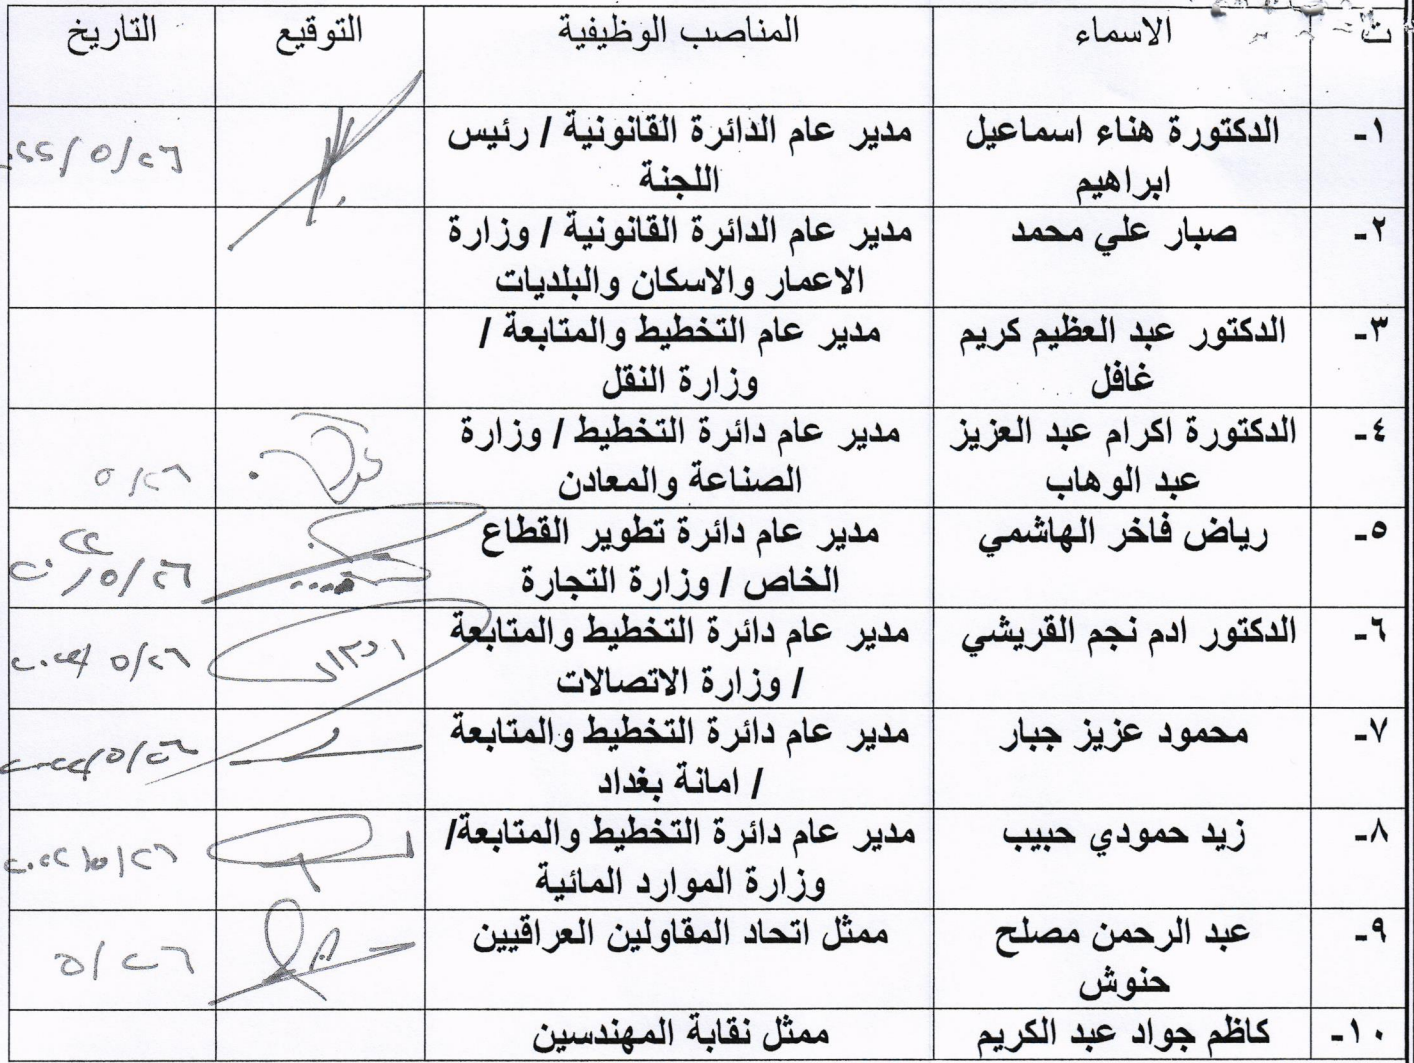 ت الاسماء المناصب الوظيفية التوقيع التاريخ
١- الدكتورة هناء اسماعيل مدير عام الدائرة القانونية / رئيس ٢٦/٥/
ابراهيم اللجنة
٢- صبار علي محمد مدير عام الدائرة القانونية / وزارة
الاعمار والاسكان والبلديات
٣- الدكتور عبد العظيم كريم مدير عام التخطيط والمتابعة /
غافل وزارة النقل
٤- الدكتورة اكرام عبد العزيز مدير عام دائرة التخطيط / وزارة
عبد الوهاب الصناعة والمعادن ٢٦/٥
٥- رياض فاخر الهاشمي مدير عام دائرة تطوير القطاع
الخاص / وزارة التجارة ٢٦/٥/
٦- الدكتور ادم نجم القريشي مدير عام دائرة التخطيط والمتابعة ٢٦/٥
/ وزارة الاتصالات
٧- محمود عزيز جبار مدير عام دائرة التخطيط والمتابعة ٢٦/٥/
/ امانة بغداد
٨- زيد حمودي حبيب مدير عام دائرة التخطيط والمتابعة/ ٢٦/٥/٢٠٢٢
وزارة الموارد المائية
٩- عبد الرحمن مصلح ممثل اتحاد المقاولين العراقيين ٢٦/٥
حنوش
١٠- كاظم جواد عبد الكريم ممثل نقابة المهندسين